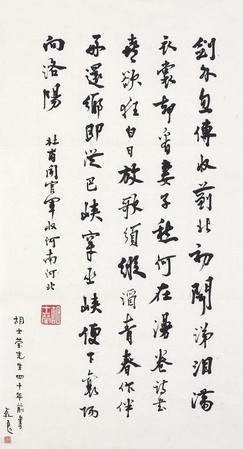 劍外忽傳收薊北初聞涕泪滿
衣裳却看妻子愁何在漫卷詩書
喜欲狂白日放歌須縱酒青春作伴
好還鄉即從巴峽穿巫峽便下襄陽
向洛陽
杜甫聞官軍收河南河北
胡士瑩先生四十年前書